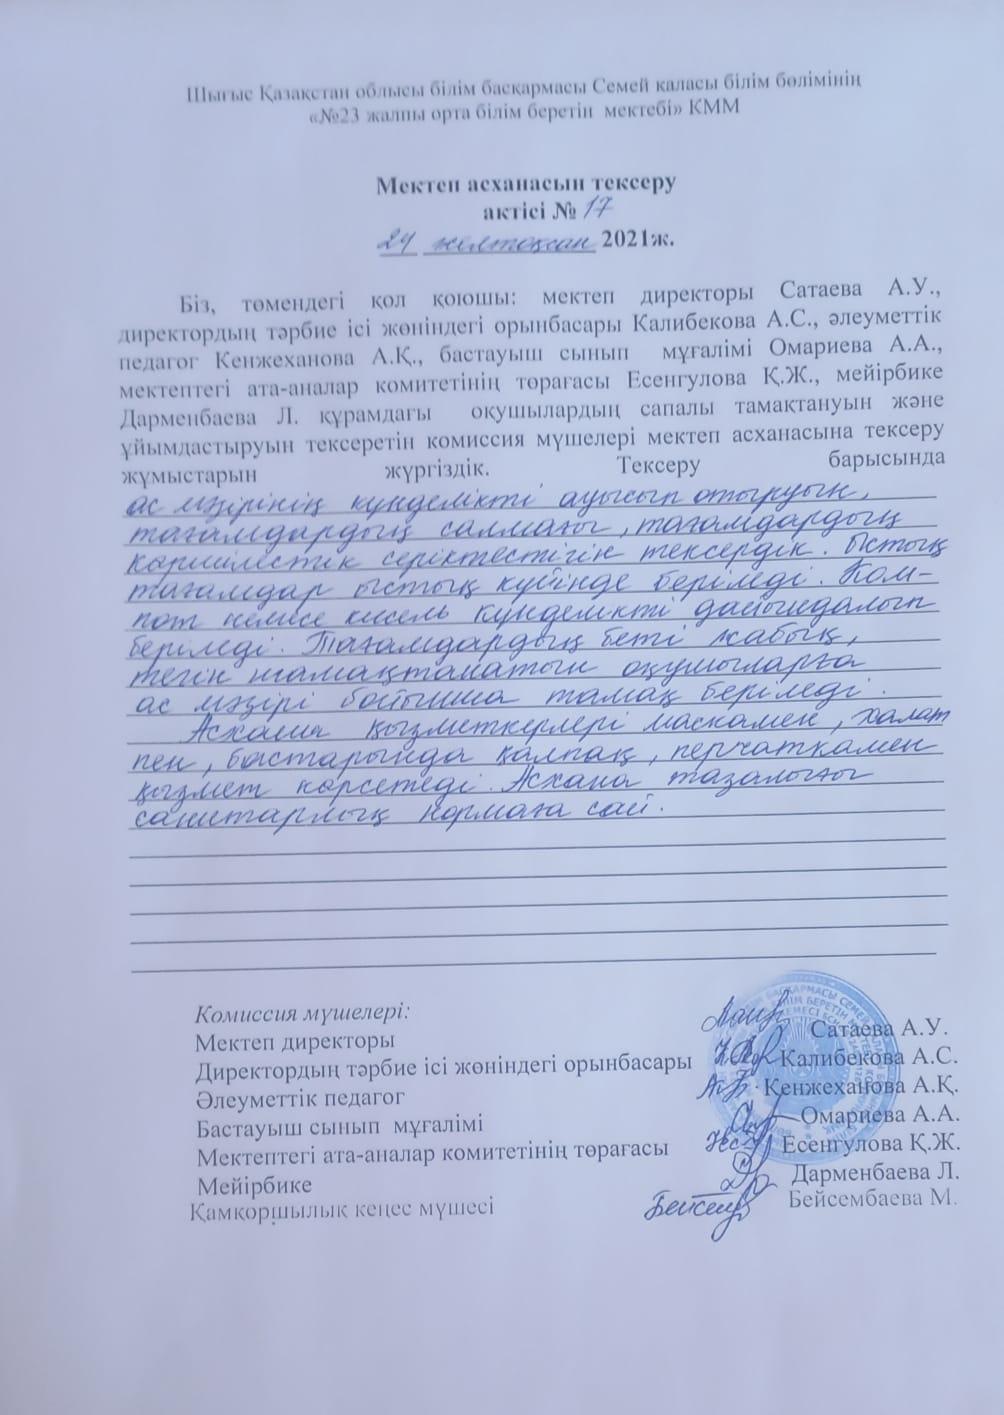 Шығыс Қазақстан облысы білім басқармасы Семей қаласы білім бөлімінің
«№23 жалпы орта білім беретін мектебі» КММ
Мектеп асханасын тексеру
актісі № 17
24 желтоқсан 2021ж.
Біз, төмендегі қол қоюшы: мектеп директоры Сатаева А.У.,
директордың тәрбие ісі жөніндегі орынбасары Калибекова А.С., әлеуметтік
педагог Кенжеханова А.Қ., бастауыш сынып мұғалімі Омариева А.А.,
мектептегі ата-аналар комитетінің төрағасы Есенгулова Қ.Ж., мейірбике
Дарменбаева Л. құрамдағы оқушылардың сапалы тамақтануын және
ұйымдастыруын тексеретін комиссия мүшелері мектеп асханасына тексеру
жұмыстарын жүргіздік. Тексеру барысында
ас мәзірінің күнделікті ауысып отыруын,
тағамдардың салмағы, тағамдардың
көршілестік серіктестігін тексердік. Ыстық
тағамдар ыстық күйінде беріледі. Ком-
пот немесе кисель күнделікті дайындалып
беріледі. Тағамдардың беті жабық,
тегін тамақтанатын оқушыларға
ас мәзірі бойынша тамақ беріледі.
Асхана қызметкерлері маскамен, халат
пен, бастарында қалпақ, перчаткамен
қызмет көрсетеді. Асхана тазалығы
санитарлық нормаға сай.
Комиссия мүшелері:
Мектеп директоры Сатаева А.У.
Директордың тәрбие ісі жөніндегі орынбасары Калибекова А.С.
Әлеуметтік педагог Кенжеханова А.Қ.
Бастауыш сынып мұғалімі Омариева А.А.
Мектептегі ата-аналар комитетінің төрағасы Есенгулова Қ.Ж.
Мейірбике Дарменбаева Л.
Қамқоршылық кеңес мүшесі Бейсембаева М.